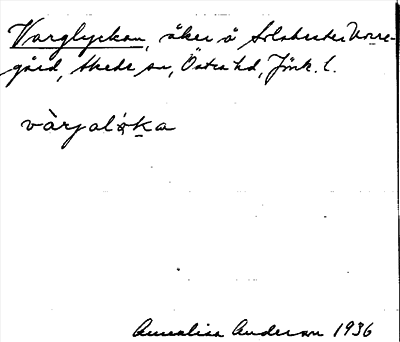 Varglyckan, åker å Solaberties Norre-
gård, Skede sn, Östra hd, Jönk. l.
vàrjalỳka
Annalisa Anderson 1936